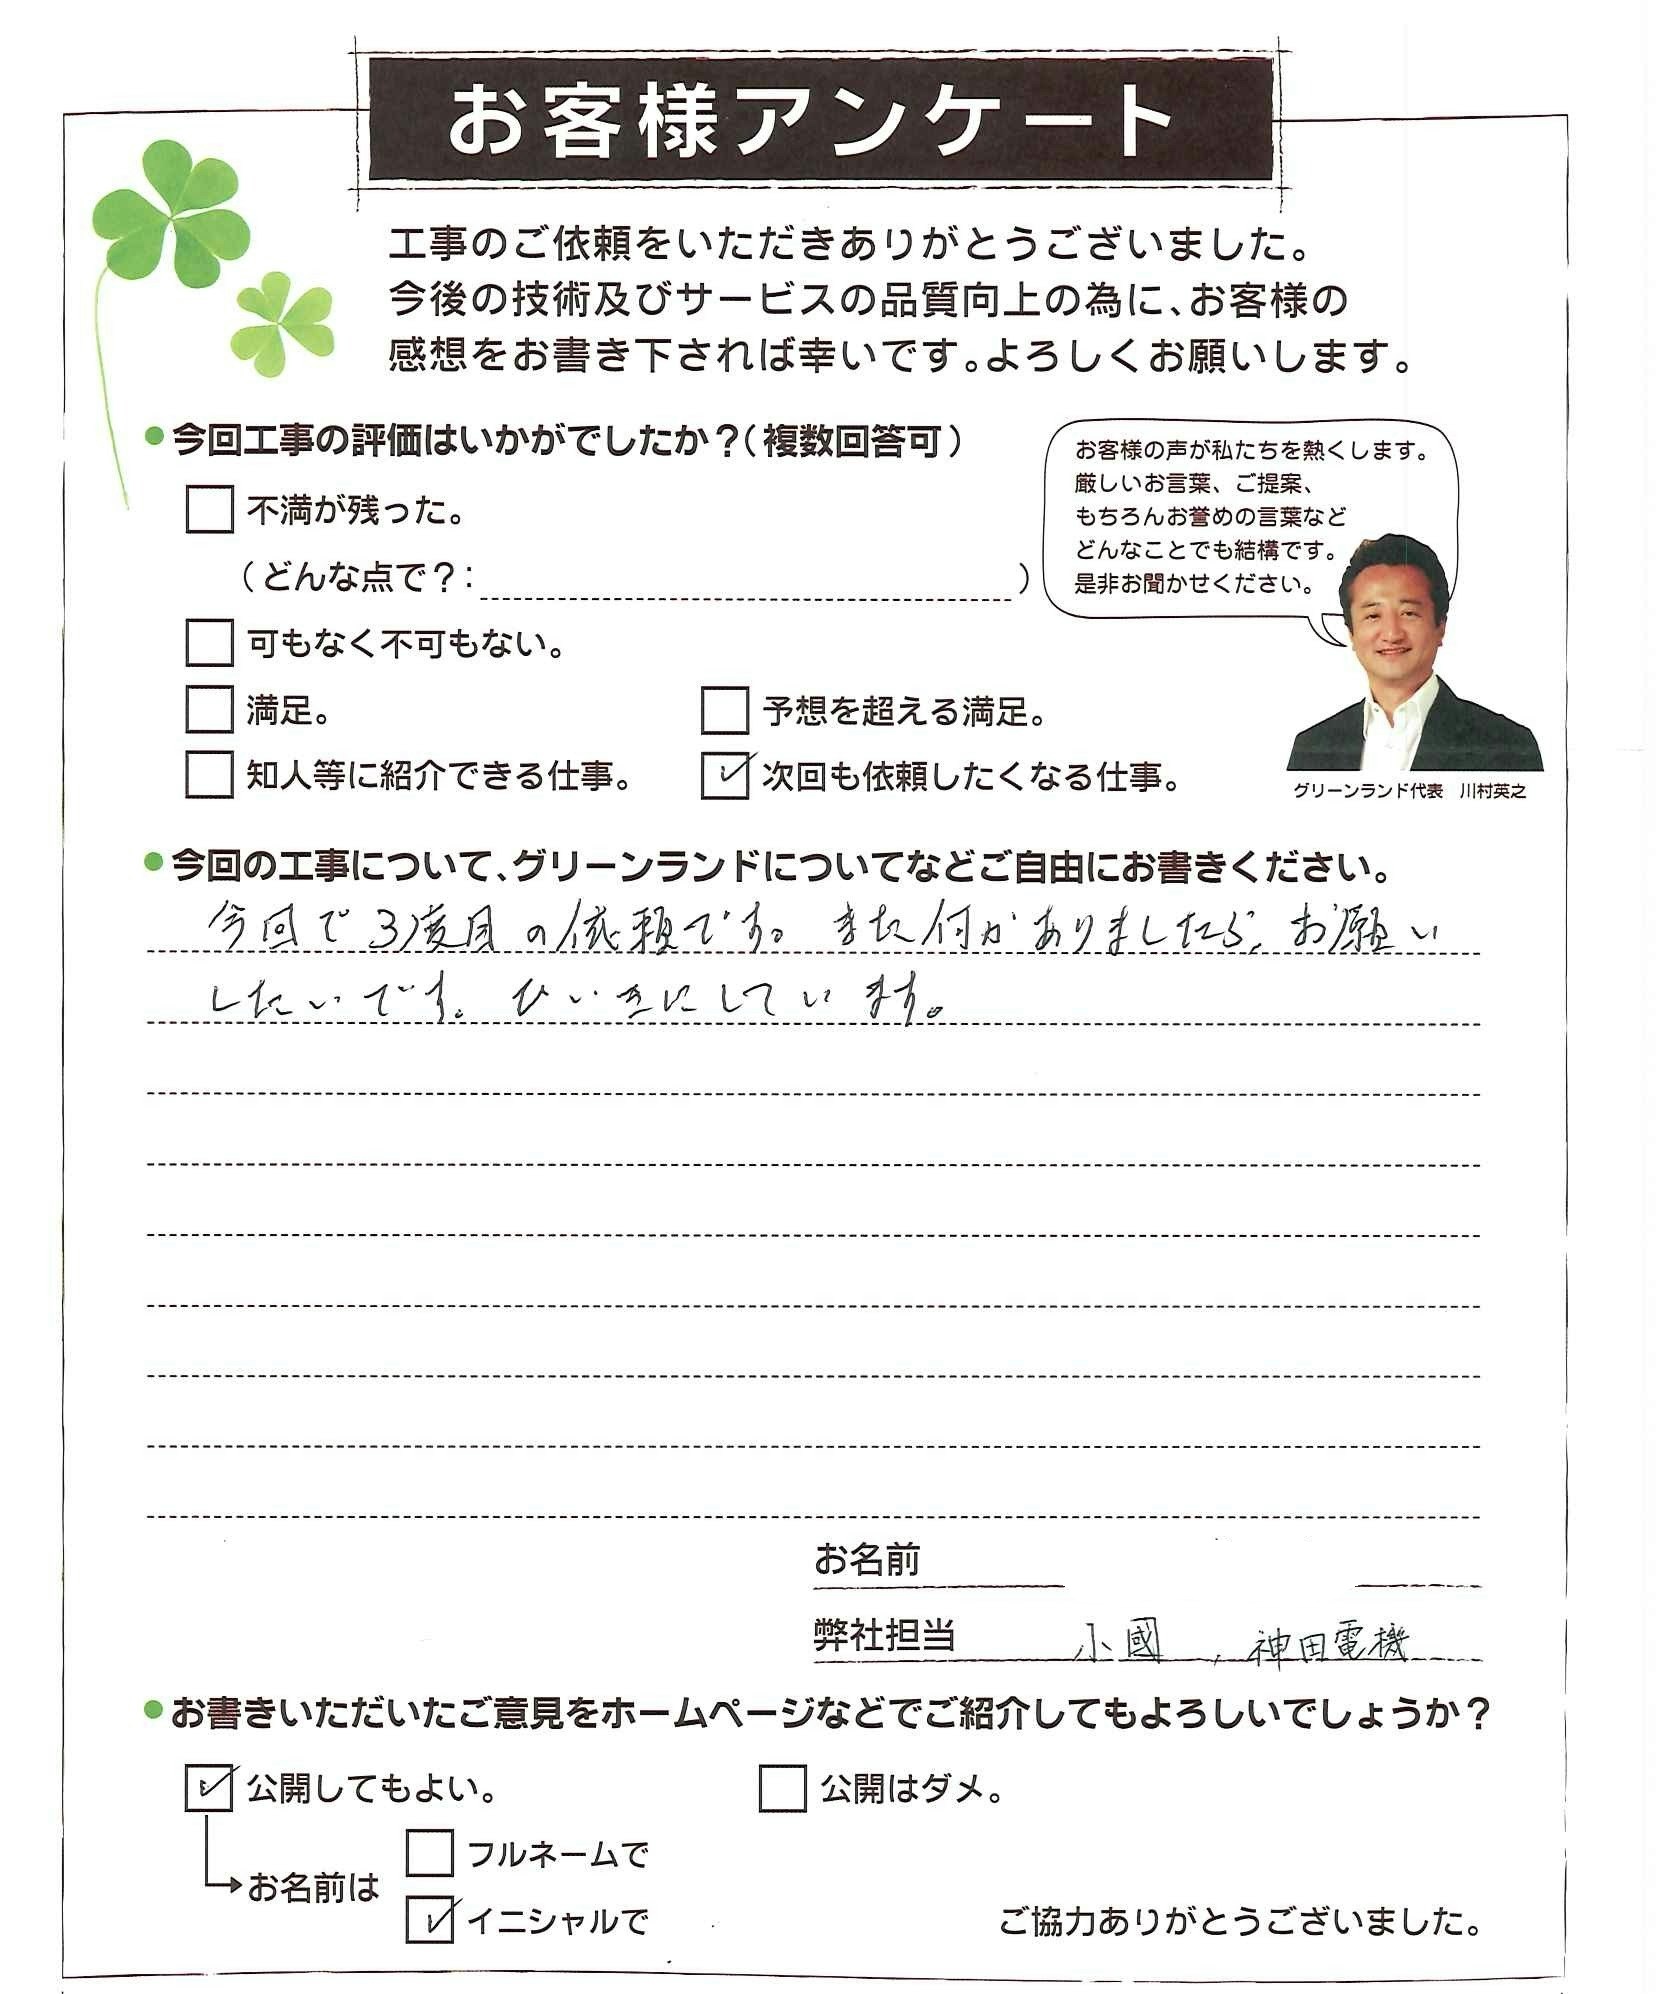 お客様アンケート
工事のご依頼をいただきありがとうございました。
今後の技術及びサービスの品質向上の為に、お客様の
感想をお書き下されば幸いです。よろしくお願いします。
●今回工事の評価はいかがでしたか？（複数回答可）
不満が残った。
（どんな点で？：　）
可もなく不可もない。
満足。
予想を超える満足。
知人等に紹介できる仕事。
次回も依頼したくなる仕事。
お客様の声が私たちを熱くします。
厳しいお言葉、ご提案、
もちろんお誉めの言葉など
どんなことでも結構です。
是非お聞かせください。
グリーンランド代表　川村英之
●今回の工事について、グリーンランドについてなどご自由にお書きください。
今回で3度目の依頼です。また何かありましたら、お願い
したいです。ひいきにしています。
お名前
弊社担当　小國，神田電機
●お書きいただいたご意見をホームページなどでご紹介してもよろしいでしょうか？
公開してもよい。
公開はダメ。
お名前は
フルネームで
イニシャルで
ご協力ありがとうございました。